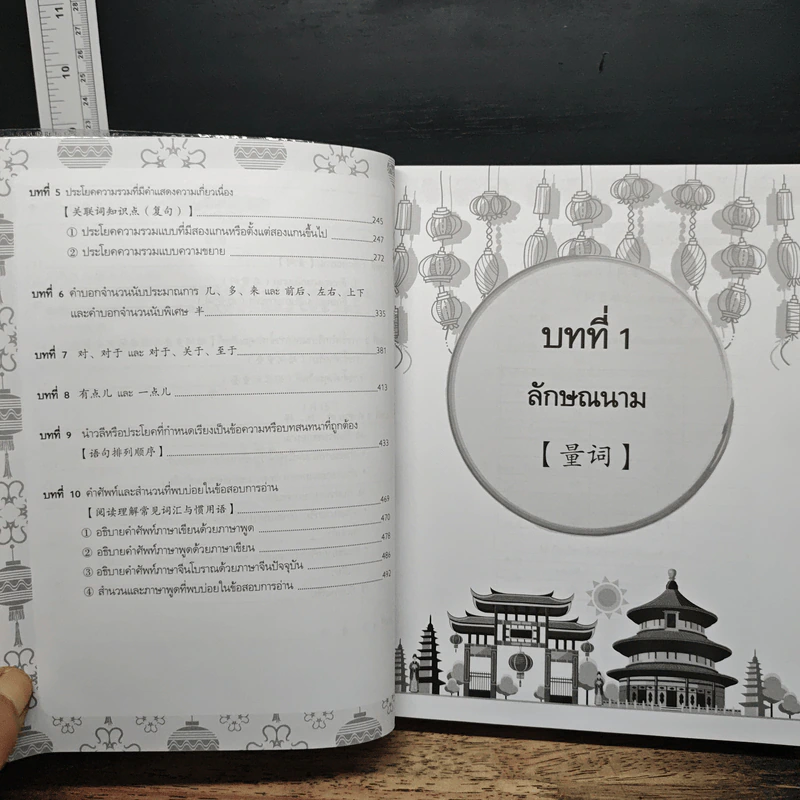 11
28
27
26
10
25
24
23
บทที่ 5 ประโยคความรวมที่มีคำแสดงความเกี่ยวเนื่อง
【关联词知识点（复句）】 245
① ประโยคความรวมแบบที่มีสองแกนหรือตั้งแต่สองแกนขึ้นไป 247
② ประโยคความรวมแบบความขยาย 272
บทที่ 6 คำบอกจำนวนนับประมาณการ 几、多、来 และ 前后、左右、上下
และคำบอกจำนวนนับพิเศษ 半 335
บทที่ 7 对、对于 และ 对于、关于、至于 381
บทที่ 8 有点儿 และ 一点儿 413
บทที่ 9 นำวลีหรือประโยคที่กำหนดเรียงเป็นข้อความหรือบทสนทนาที่ถูกต้อง
【语句排列顺序】 433
บทที่ 10 คำศัพท์และสำนวนที่พบบ่อยในข้อสอบการอ่าน
【阅读理解常见词汇与惯用语】 469
① อธิบายคำศัพท์ภาษาเขียนด้วยภาษาพูด 470
② อธิบายคำศัพท์ภาษาพูดด้วยภาษาเขียน 478
③ อธิบายคำศัพท์ภาษาจีนโบราณด้วยภาษาจีนปัจจุบัน 486
④ สำนวนและภาษาพูดที่พบบ่อยในข้อสอบการอ่าน 492
บทที่ 1
ลักษณนาม
【量词】